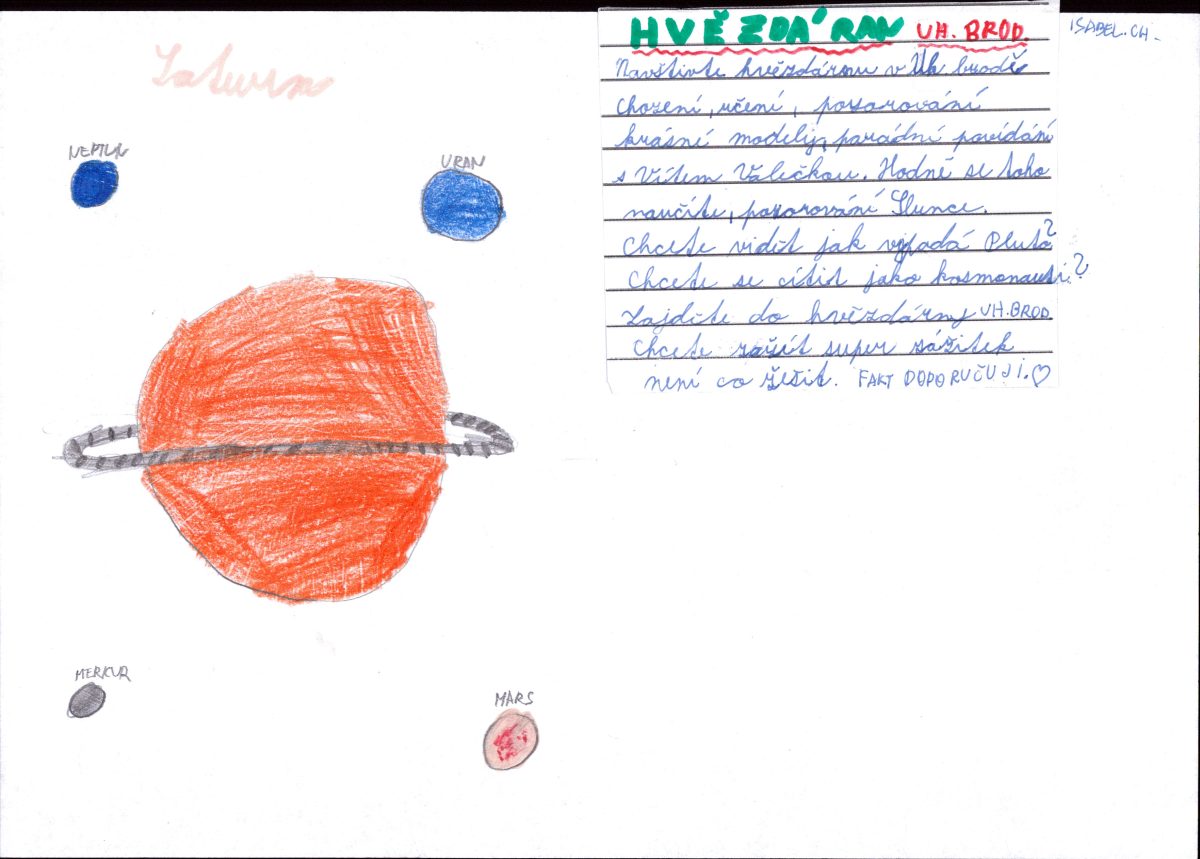 Saturn
NEPTUN
URAN
MERKUR
MARS
HVĚZDÁRAN UH. BROD.
ISABEL.CH.
Navštivte hvězdárnu v Uh. brodě
chození, učení, pozorování
krásní modely, parádní povídání
s Vítem Válečkou. Hodně se toho
naučíte, pozorování Slunce.
Chcete vidět jak vypadá Pluto?
Chcete se cítit jako kosmonauti?
Zajděte do hvězdárny UH.BROD
Chcete zažít super zážitek
není co řešit. FAKT DOPORUČUJI.♡